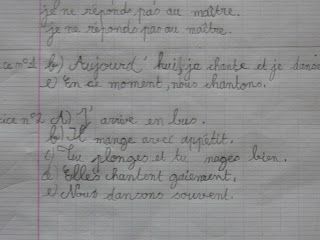 je ne réponds pas au maître.
je ne réponds pas au maître.
ce n°1 b) Aujourd'hui, ja chante et je danse
e) En ce moment, nous chantons.
cice n°2 A) J'arrive en bus.
b) Il mange avec appétit.
c) Tu plonges et tu nages bien.
d) Elles chantent gaiement.
e) Nous dansons souvent.